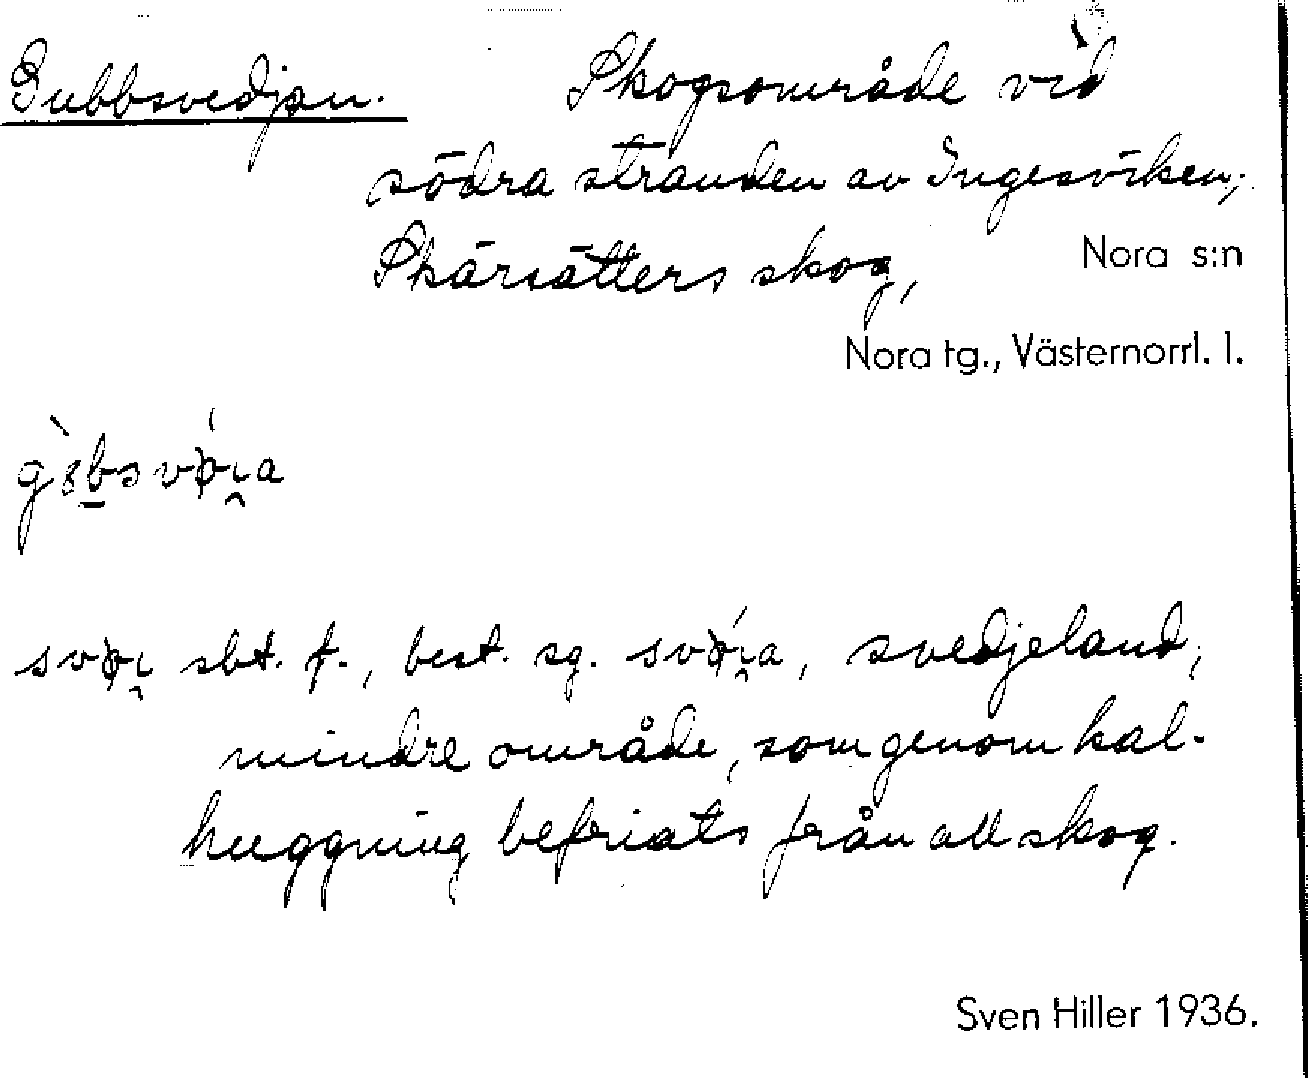 Gubbsvedjan. Skogsområde vid
södra stranden av Ingesviken,
Skärsätters skog, Nora s:n
Nora tg., Västernorrl. l.
sbt. f., best. sg. svedjeland,
mindre område, som genom kal-
huggning befriats från all skog.
Sven Hiller 1936.